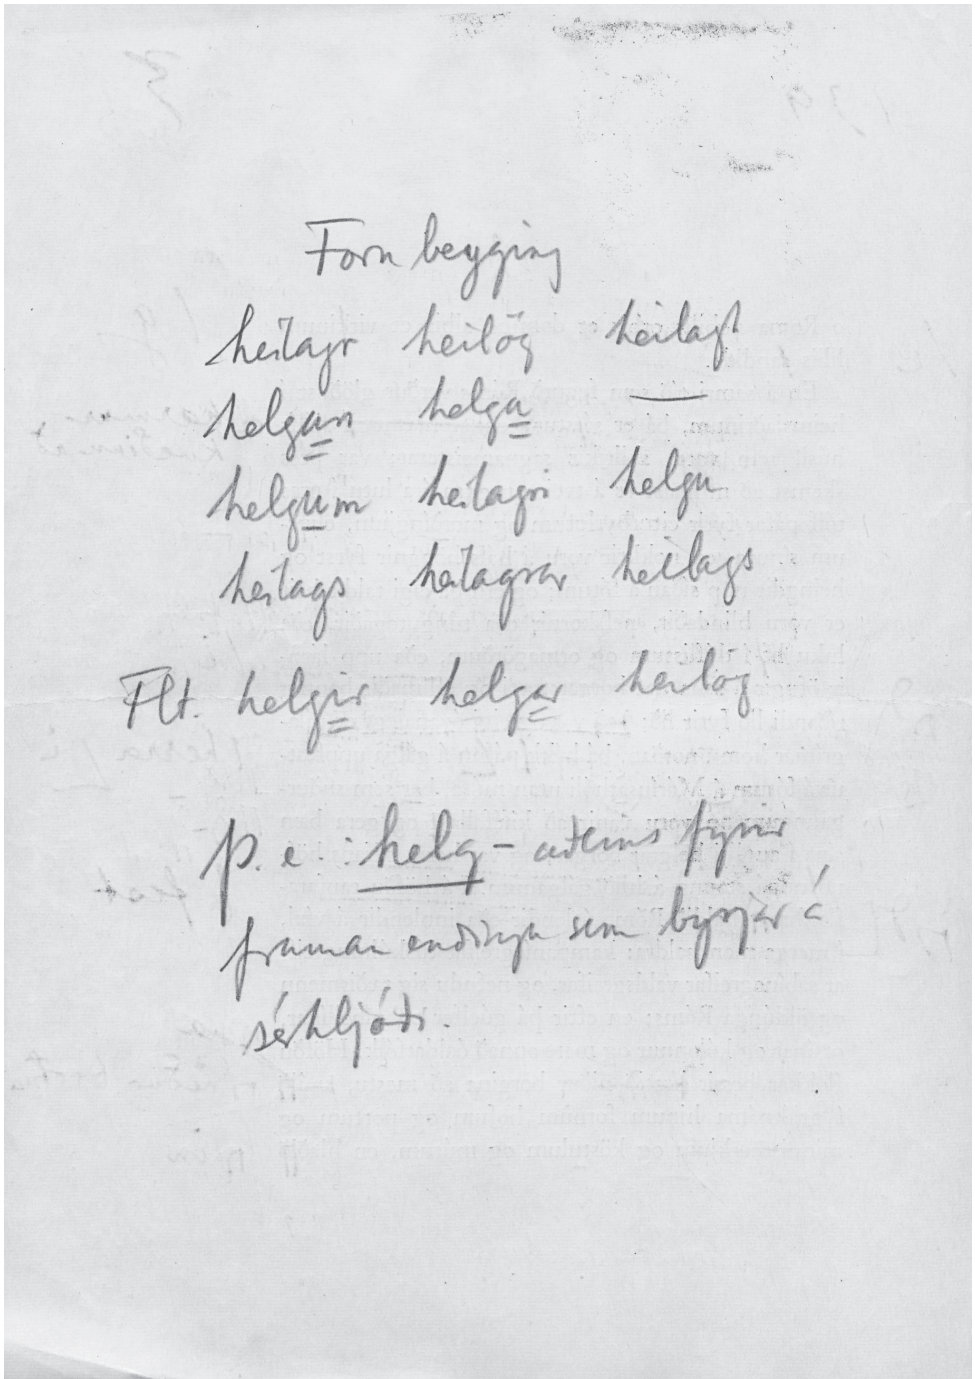 Forn beyging
heilagr heilög heilagt
helgan helga —
helgum heilagri helgu
heilags heilagrar heilags
Flt. helgir helgar heilög
Þ.e.: helg- aðeins fyrir
framan endingu sem byrjar á
sérhljóði.